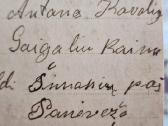 Antana Kavoli
Gaigalių Kaimo
di Šimonių paš
Panevėžo